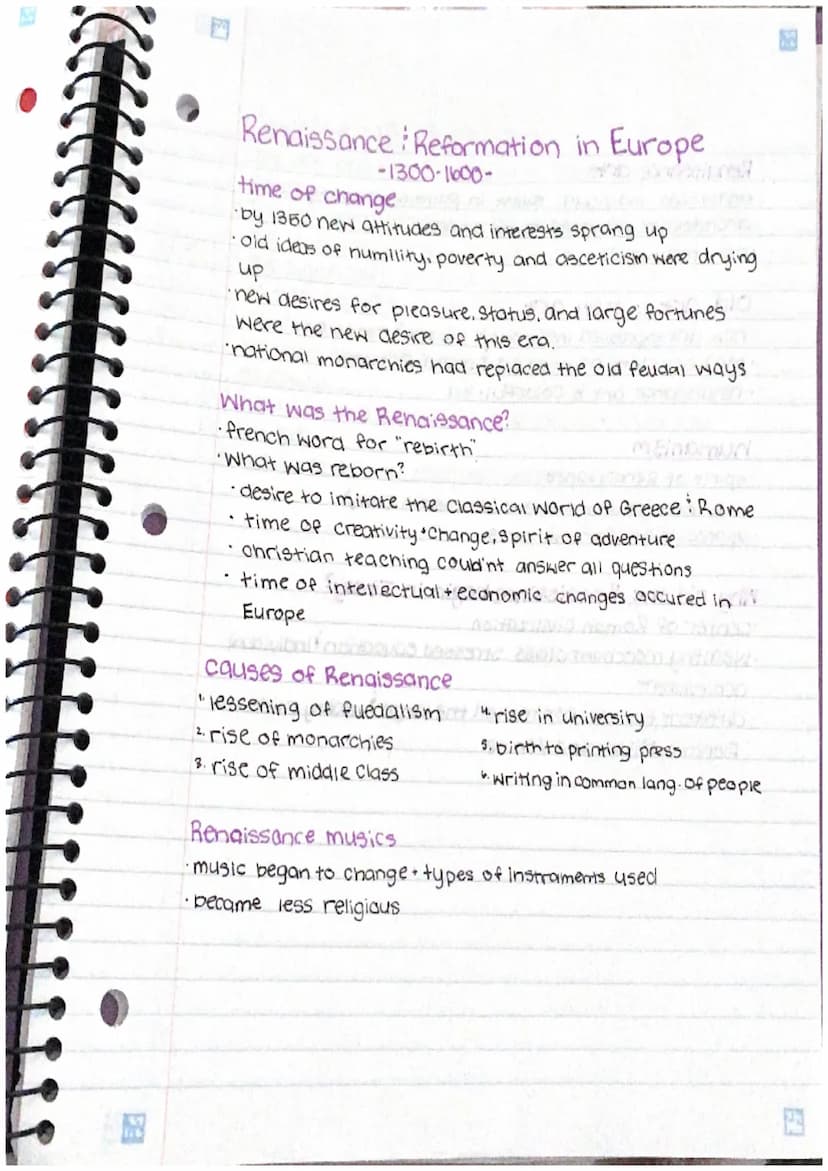 Renaissance & Reformation in Europe
-1300-1600-
time of change
·by 1350 new attitudes and interests sprang up
·old ideas of humility, poverty and asceticism were drying
up
·new desires for pleasure, status, and large fortunes
were the new desire of this era.
·national monarchies had replaced the old feudal ways
What was the Renaissance?
·french word for "rebirth"
·What was reborn?
·desire to imitate the Classical world of Greece & Rome
·time of creativity + Change, Spirit of adventure
·christian teaching could'nt answer all questions
·time of intellectual + economic changes accured in
Europe
Causes of Renaissance
1. lessening of fuedalism 4. rise in university
2. rise of monarchies 5. birth to printing press
3. rise of middle Class 6. writing in common lang. of people
Renaissance musics
·music began to change + types of instraments used
·became less religious